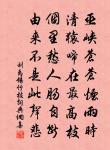 巫峽蒼蒼煙雨時
清猿啼在最高枝
個里愁人腸自斷
由來不是此聲悲
劉禹錫竹枝詞